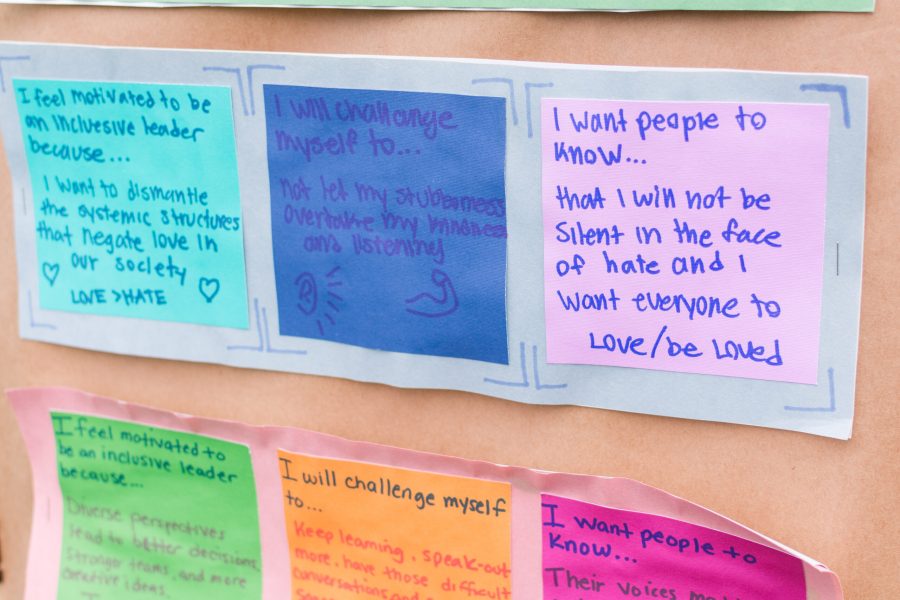 I feel motivated to be
an inclusive leader
because...
I want to dismantle
the systemic structures
that negate love in
our society
LOVE > HATE
I will challange
myself to...
not let my stubborness
overtake my kindness
and listening
I want people to
know...
that I will not be
silent in the face
of hate and I
want everyone to
LOVE/be LOVED
I feel motivated to
be an inclusive leader
because...
Diverse perspectives
lead to better decisions,
stronger teams, and more
creative ideas.
I will challenge myself
to...
Keep learning, speak-out
more, have those difficult
conversations, and
I want people to
know...
Their voices